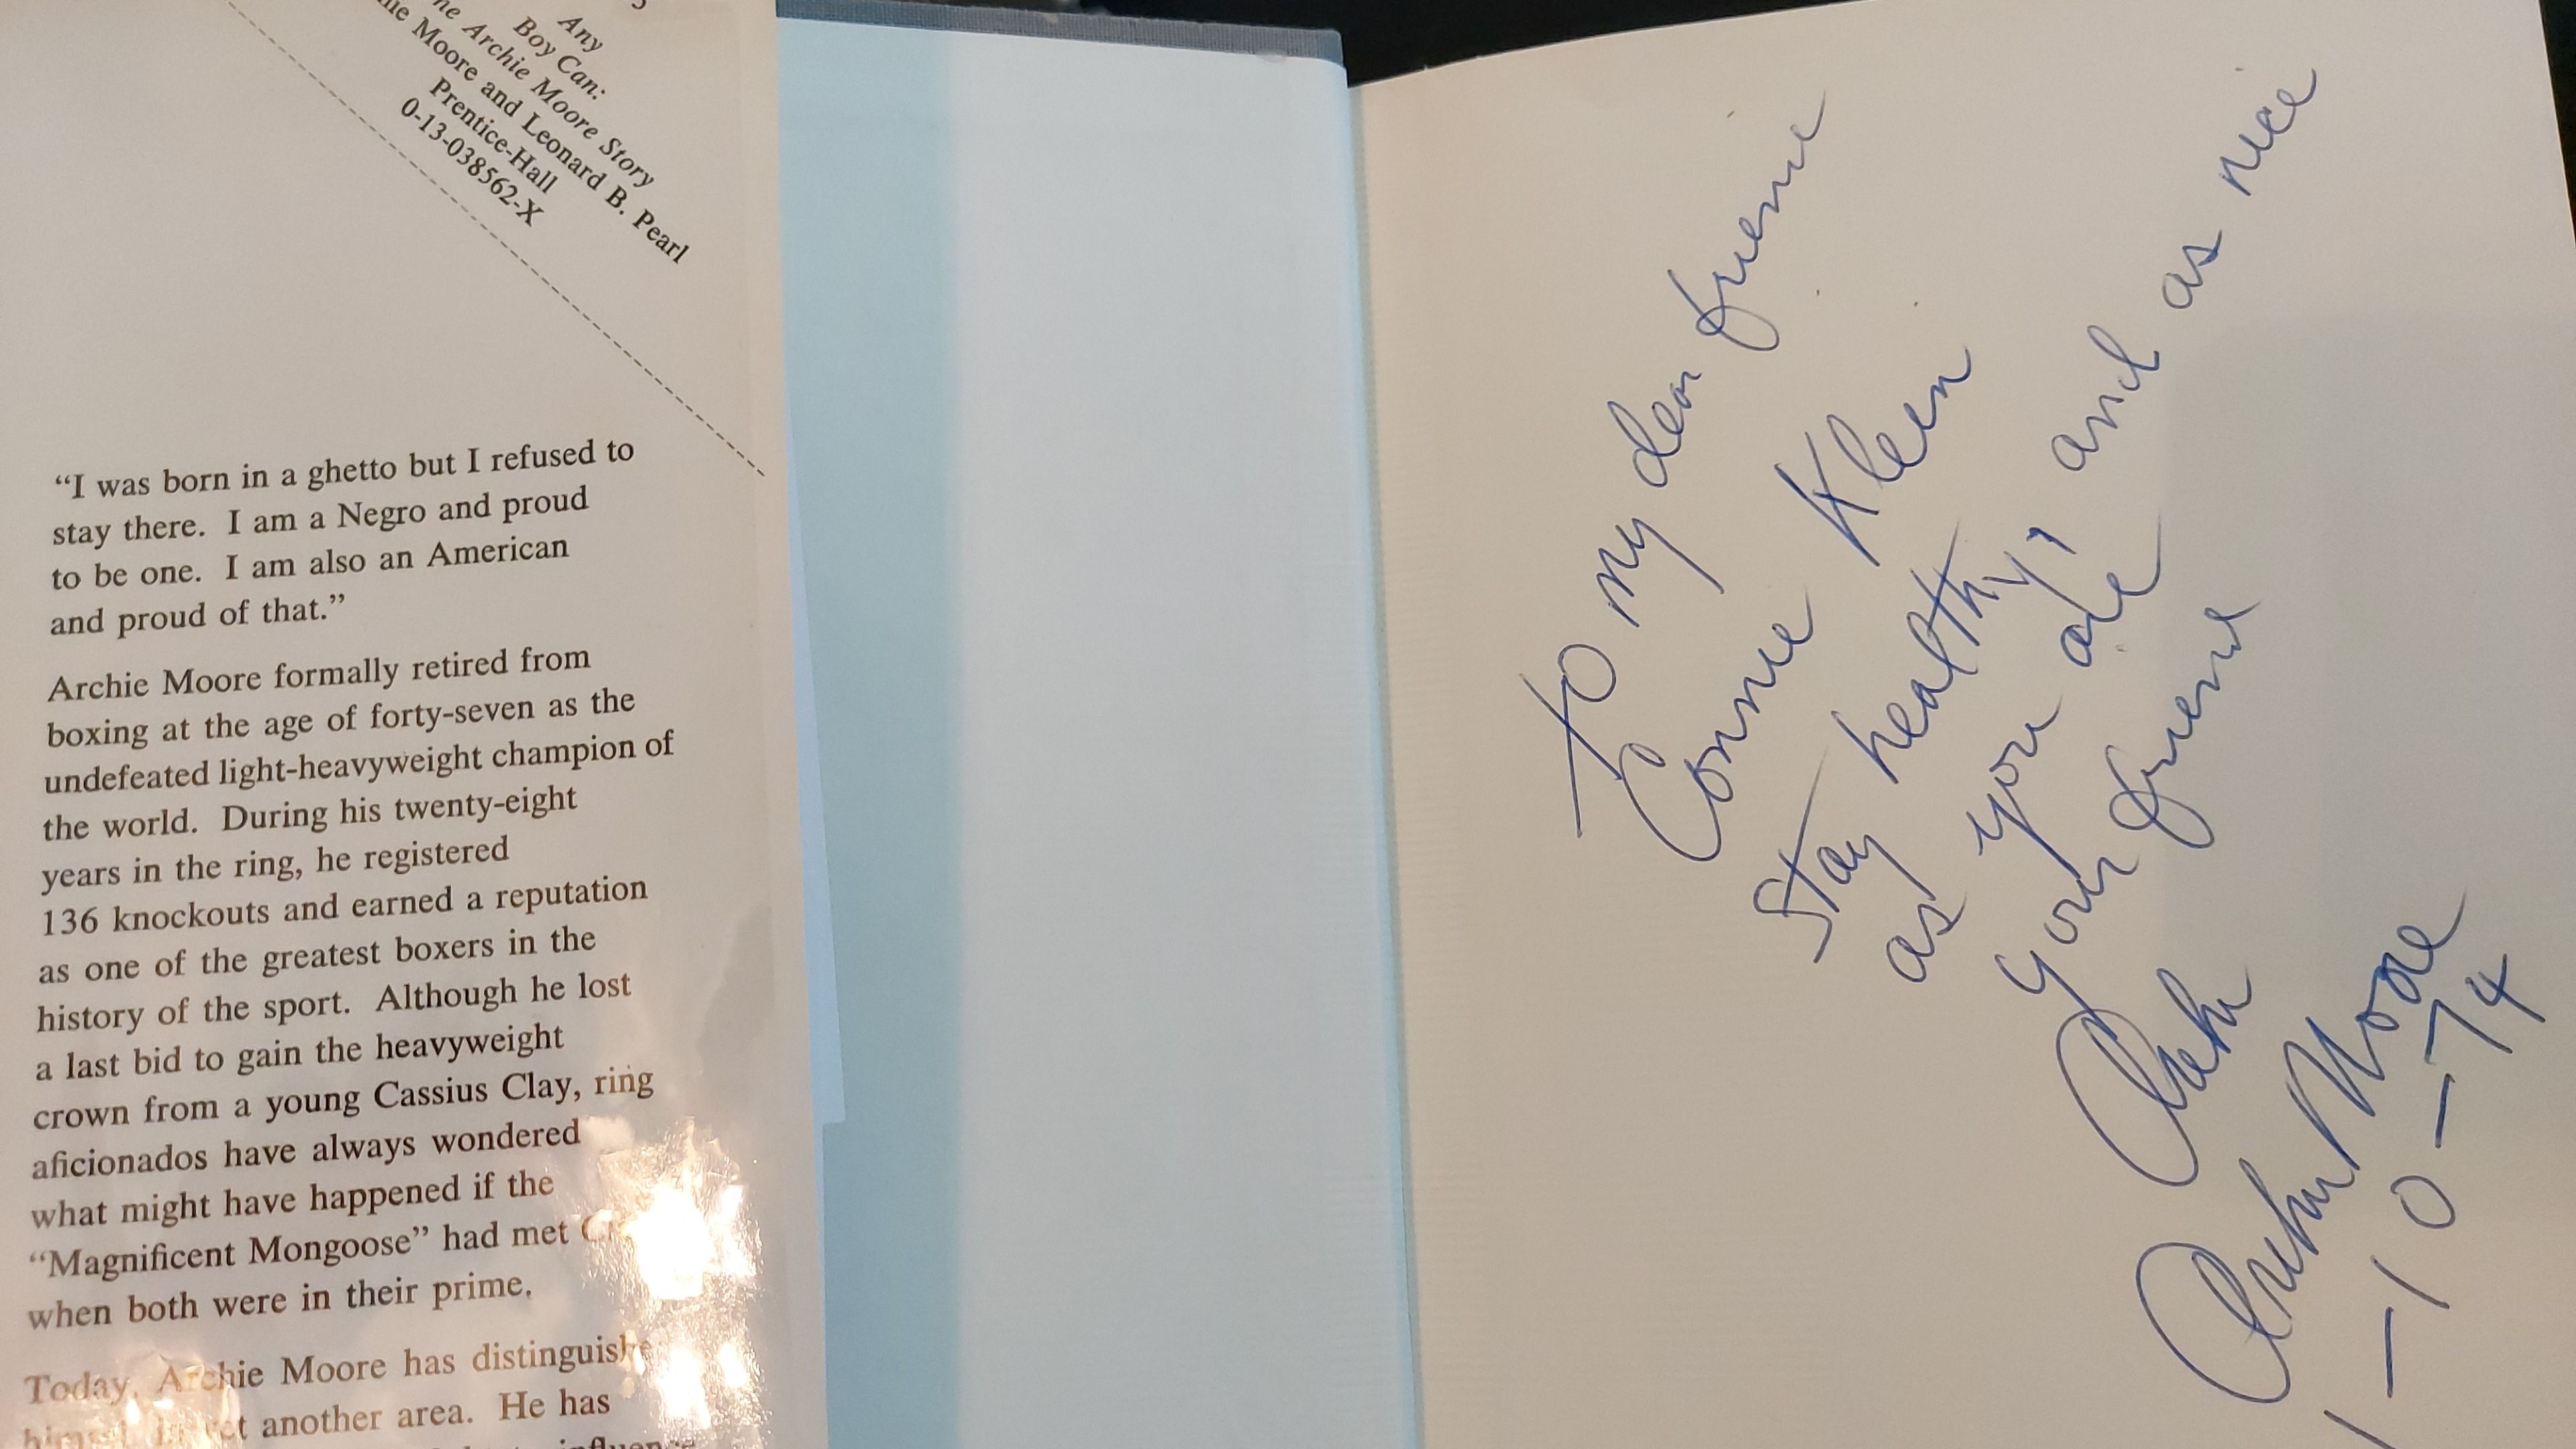 Any
Boy Can:
The Archie Moore Story
Moore and Leonard B. Pearl
Prentice-Hall
0-13-038562-X
“I was born in a ghetto but I refused to
stay there. I am a Negro and proud
to be one. I am also an American
and proud of that.”
Archie Moore formally retired from
boxing at the age of forty-seven as the
undefeated light-heavyweight champion of
the world. During his twenty-eight
years in the ring, he registered
136 knockouts and earned a reputation
as one of the greatest boxers in the
history of the sport. Although he lost
a last bid to gain the heavyweight
crown from a young Cassius Clay, ring
aficionados have always wondered
what might have happened if the
“Magnificent Mongoose” had met
when both were in their prime.
Today, Archie Moore has
another area. He has
To my dear friend
Connie Klein
Stay healthy, and as nice
as you are
your friend
Archie
Archie Moore
1-10-74